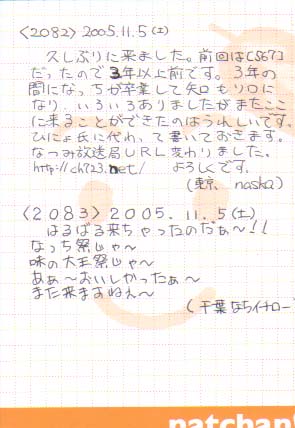 〈2082〉2005.11.5(土)
久しぶりに来ました。前回は〈567〉
だったので3年以上前です。3年の
間になっちが卒業して矢口もソロに
なり、いろいろありましたがまたここ
に来ることができたのはうれしいです。
ひにょ氏に代わって書いておきます。
なつみ放送局URL変わりました。
http://ch723.net/ よろしくです。
(東京、naska)
〈2083〉2005.11.5(土)
はるばる来ちゃったのだぁ〜!!
なっち祭じゃ〜
味の大王祭じゃ〜
あぁ〜おいしかったぁ〜
また来ますねぇ〜
(千葉なちイチロー
patchan